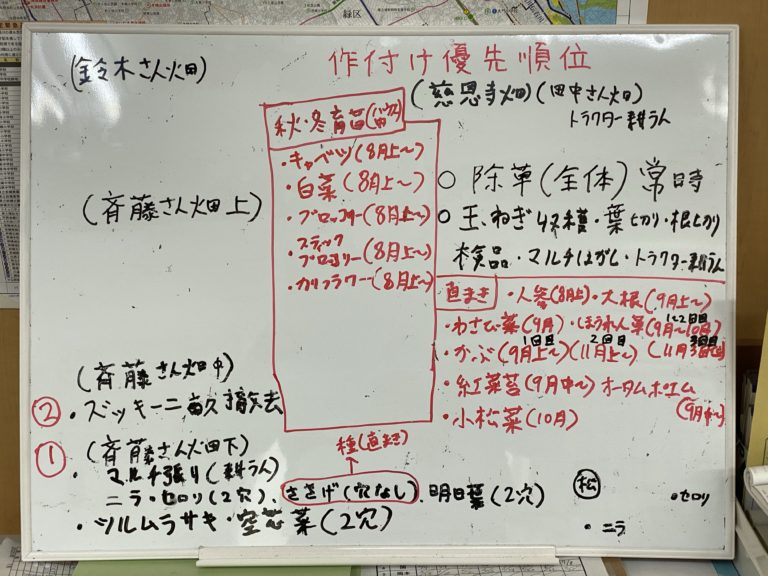 緑区
(鈴木さん畑)
作付け優先順位
(慈恩寺畑)(田中さん畑)
トラクター耕うん
秋・冬育苗
・キャベツ(8月上〜)
・白菜(8月上〜)
・ブロッコリー(8月上〜)
・スティック
ブロッコリー(8月上〜)
・カリフラワー(8月上〜)
(斉藤さん畑上)
○ 除草(全体)常時
○ 玉ねぎ収穫・葉切り・根切り
検品・マルチはがし・トラクター耕うん
直まき ・人参(8月上)・大根(9月上〜)
・わさび菜(9月)・ほうれん草(9月〜10月)
1〜2回目
・かぶ(9月上〜)(11月上〜)
1回目 2回目
・紅菜苔(9月中〜) オータムポエム
(9月中〜)
・小松菜(10月)
(斉藤さん畑中)
② ・ズッキーニ 撤去
① (斉藤さん畑下)
・マルチ張り(耕うん)
ニラ・セロリ(2穴)、ささげ(穴なし)、明日葉(2穴)
種(直まき)
・ツルムラサキ・空芯菜(2穴)
松
・セロリ
・ニラ